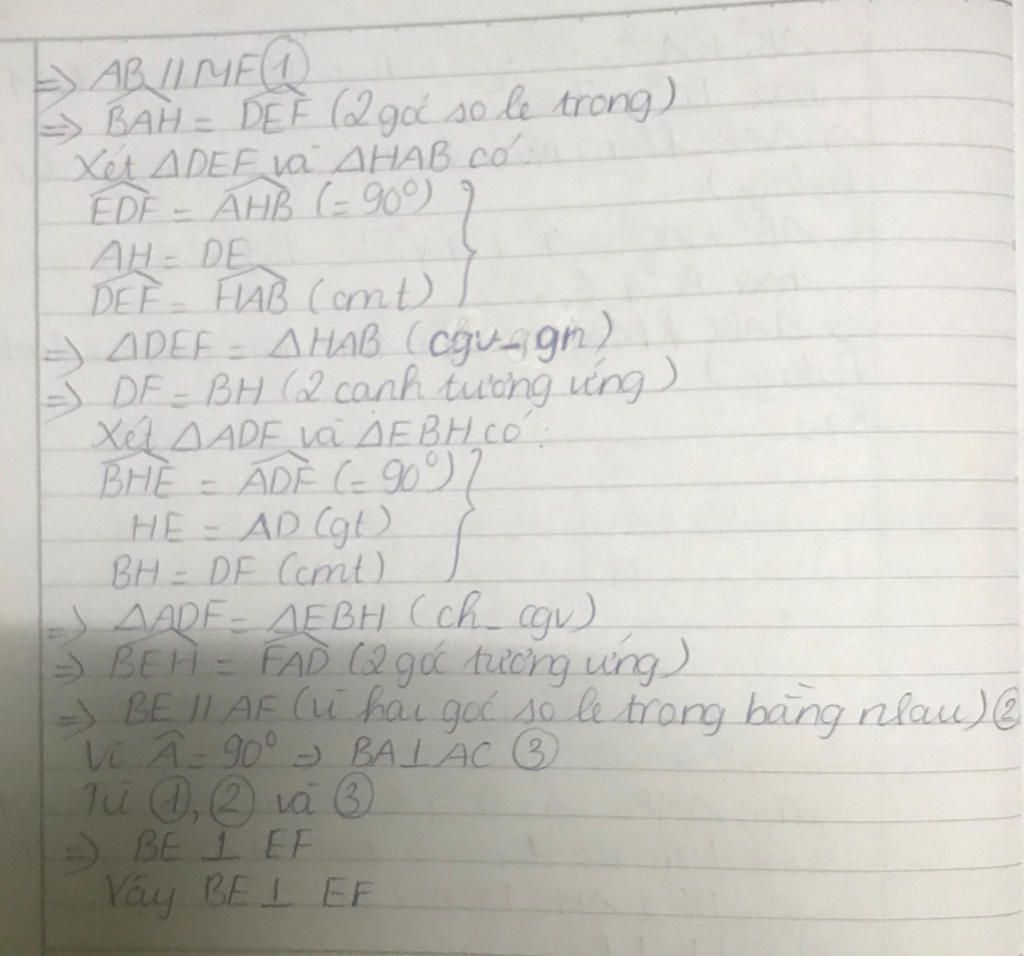 => AB // MF ①
=> BAH = DEF (2 góc so le trong)
Xét ΔDEF và ΔHAB có:
EDF = AHB (= 90°)
AH = DE
DEF = HAB (cmt)
=> ΔDEF = ΔHAB (cgv - gn)
=> DF = BH (2 cạnh tương ứng)
Xét ΔADF và ΔEBH có:
BHE = ADF (= 90°)
HE = AD (gt)
BH = DF (cmt)
=> ΔADF = ΔEBH (ch - cgv)
=> BEH = FAD (2 góc tương ứng)
=> BE // AF (vì hai góc so le trong bằng nhau) ②
Vì Â = 90° => BA ⊥ AC ③
Từ ①, ② và ③
=> BE ⊥ EF
Vậy BE ⊥ EF